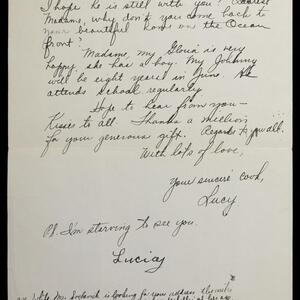 I hope he is still with you? Dearest
Madame, why don't you come back to
your beautiful home on the Ocean
front?
Madame, my Gloria is very
happy she has a boy. My Johnny
will be eight years in June. He
attends school regularly
Hope to hear from you—
Kisses to all. Thanks a million
for your generous gift. Regards to you all.
With lots of love,
Your sincere cook,
Lucy.
Ps. I'm starving to see you.
Lucia
Mr. is looking for your address